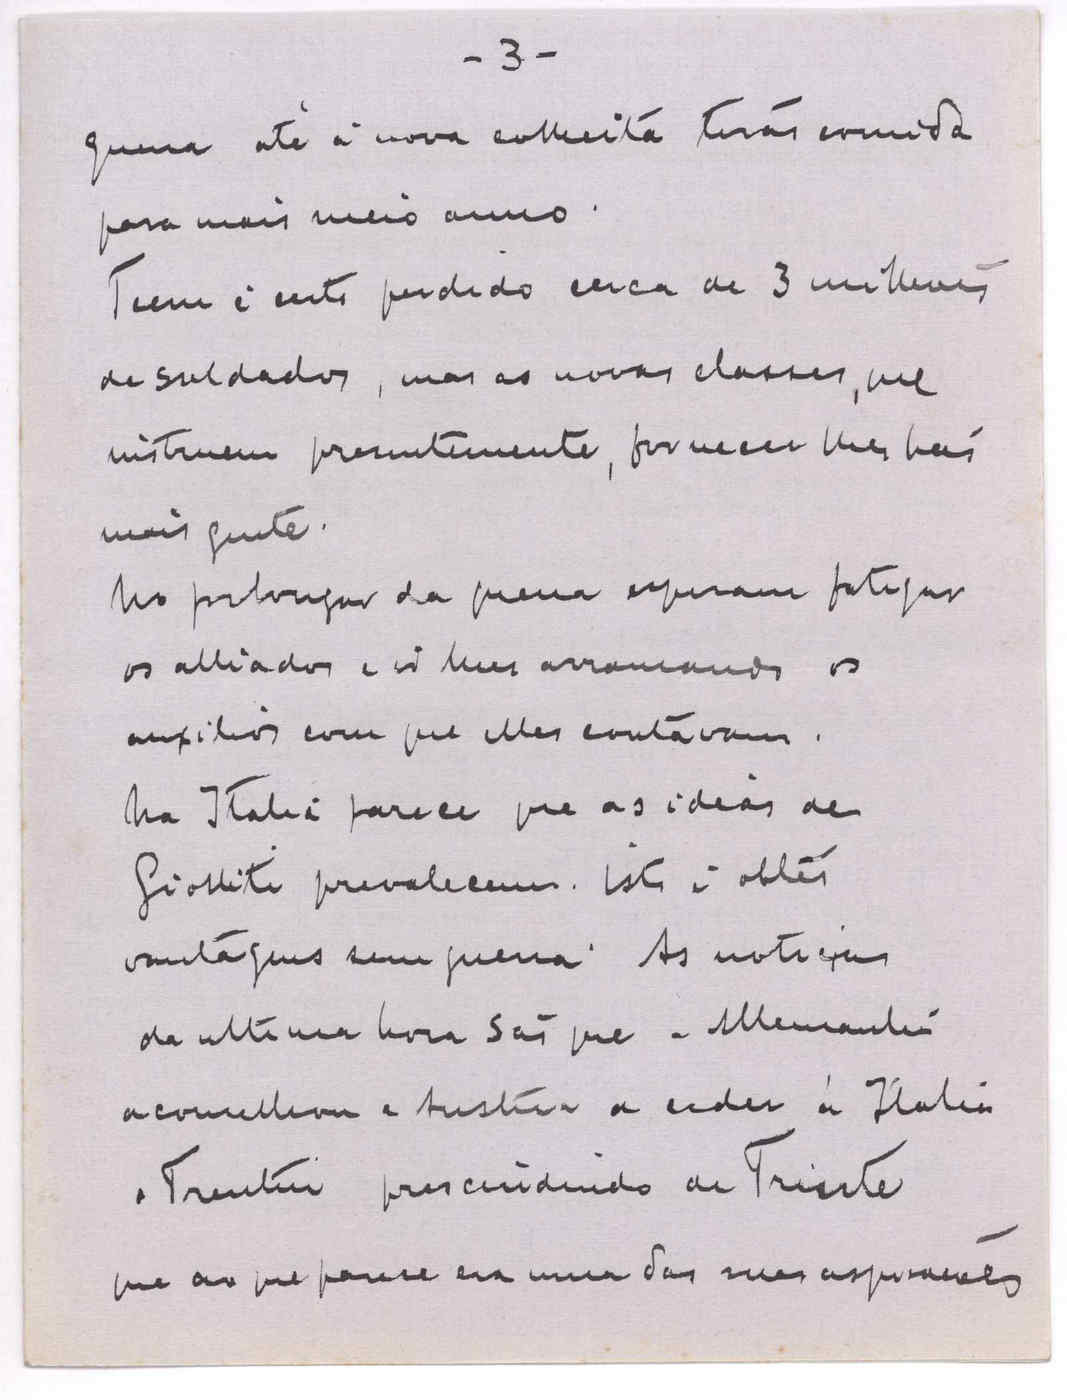 - 3 -
guerra até á nova colheita terão comida
para mais meio anno.
Teem é certo perdido cerca de 3 milhões
de soldados, mas as novas classes, que
instruem presentemente, fornecer lhes hão
mais gente.
No prolongar da guerra esperam fatigar
os alliados e ir lhes arrancando os
auxilios com que elles contavam.
Na Italia parece que as ideias de
Giolliti prevalecem. Isto é obter
vantagens sem guerra. As noticias
da ultima hora são que a Allemanha
aconselhou a Austria a ceder á Italia
o Trentin prescindindo de Trieste
que ao que parece era uma das suas aspirações